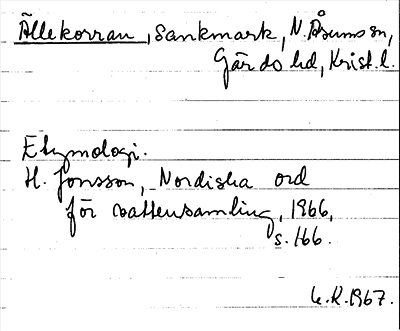 Ällekorran, sankmark, N. Åsums sn,
Gärds hd, Krist. l.
Etymologi.
H. Jonsson, Nordiska ord
för vattensamling, 1966,
s. 166.
1967.